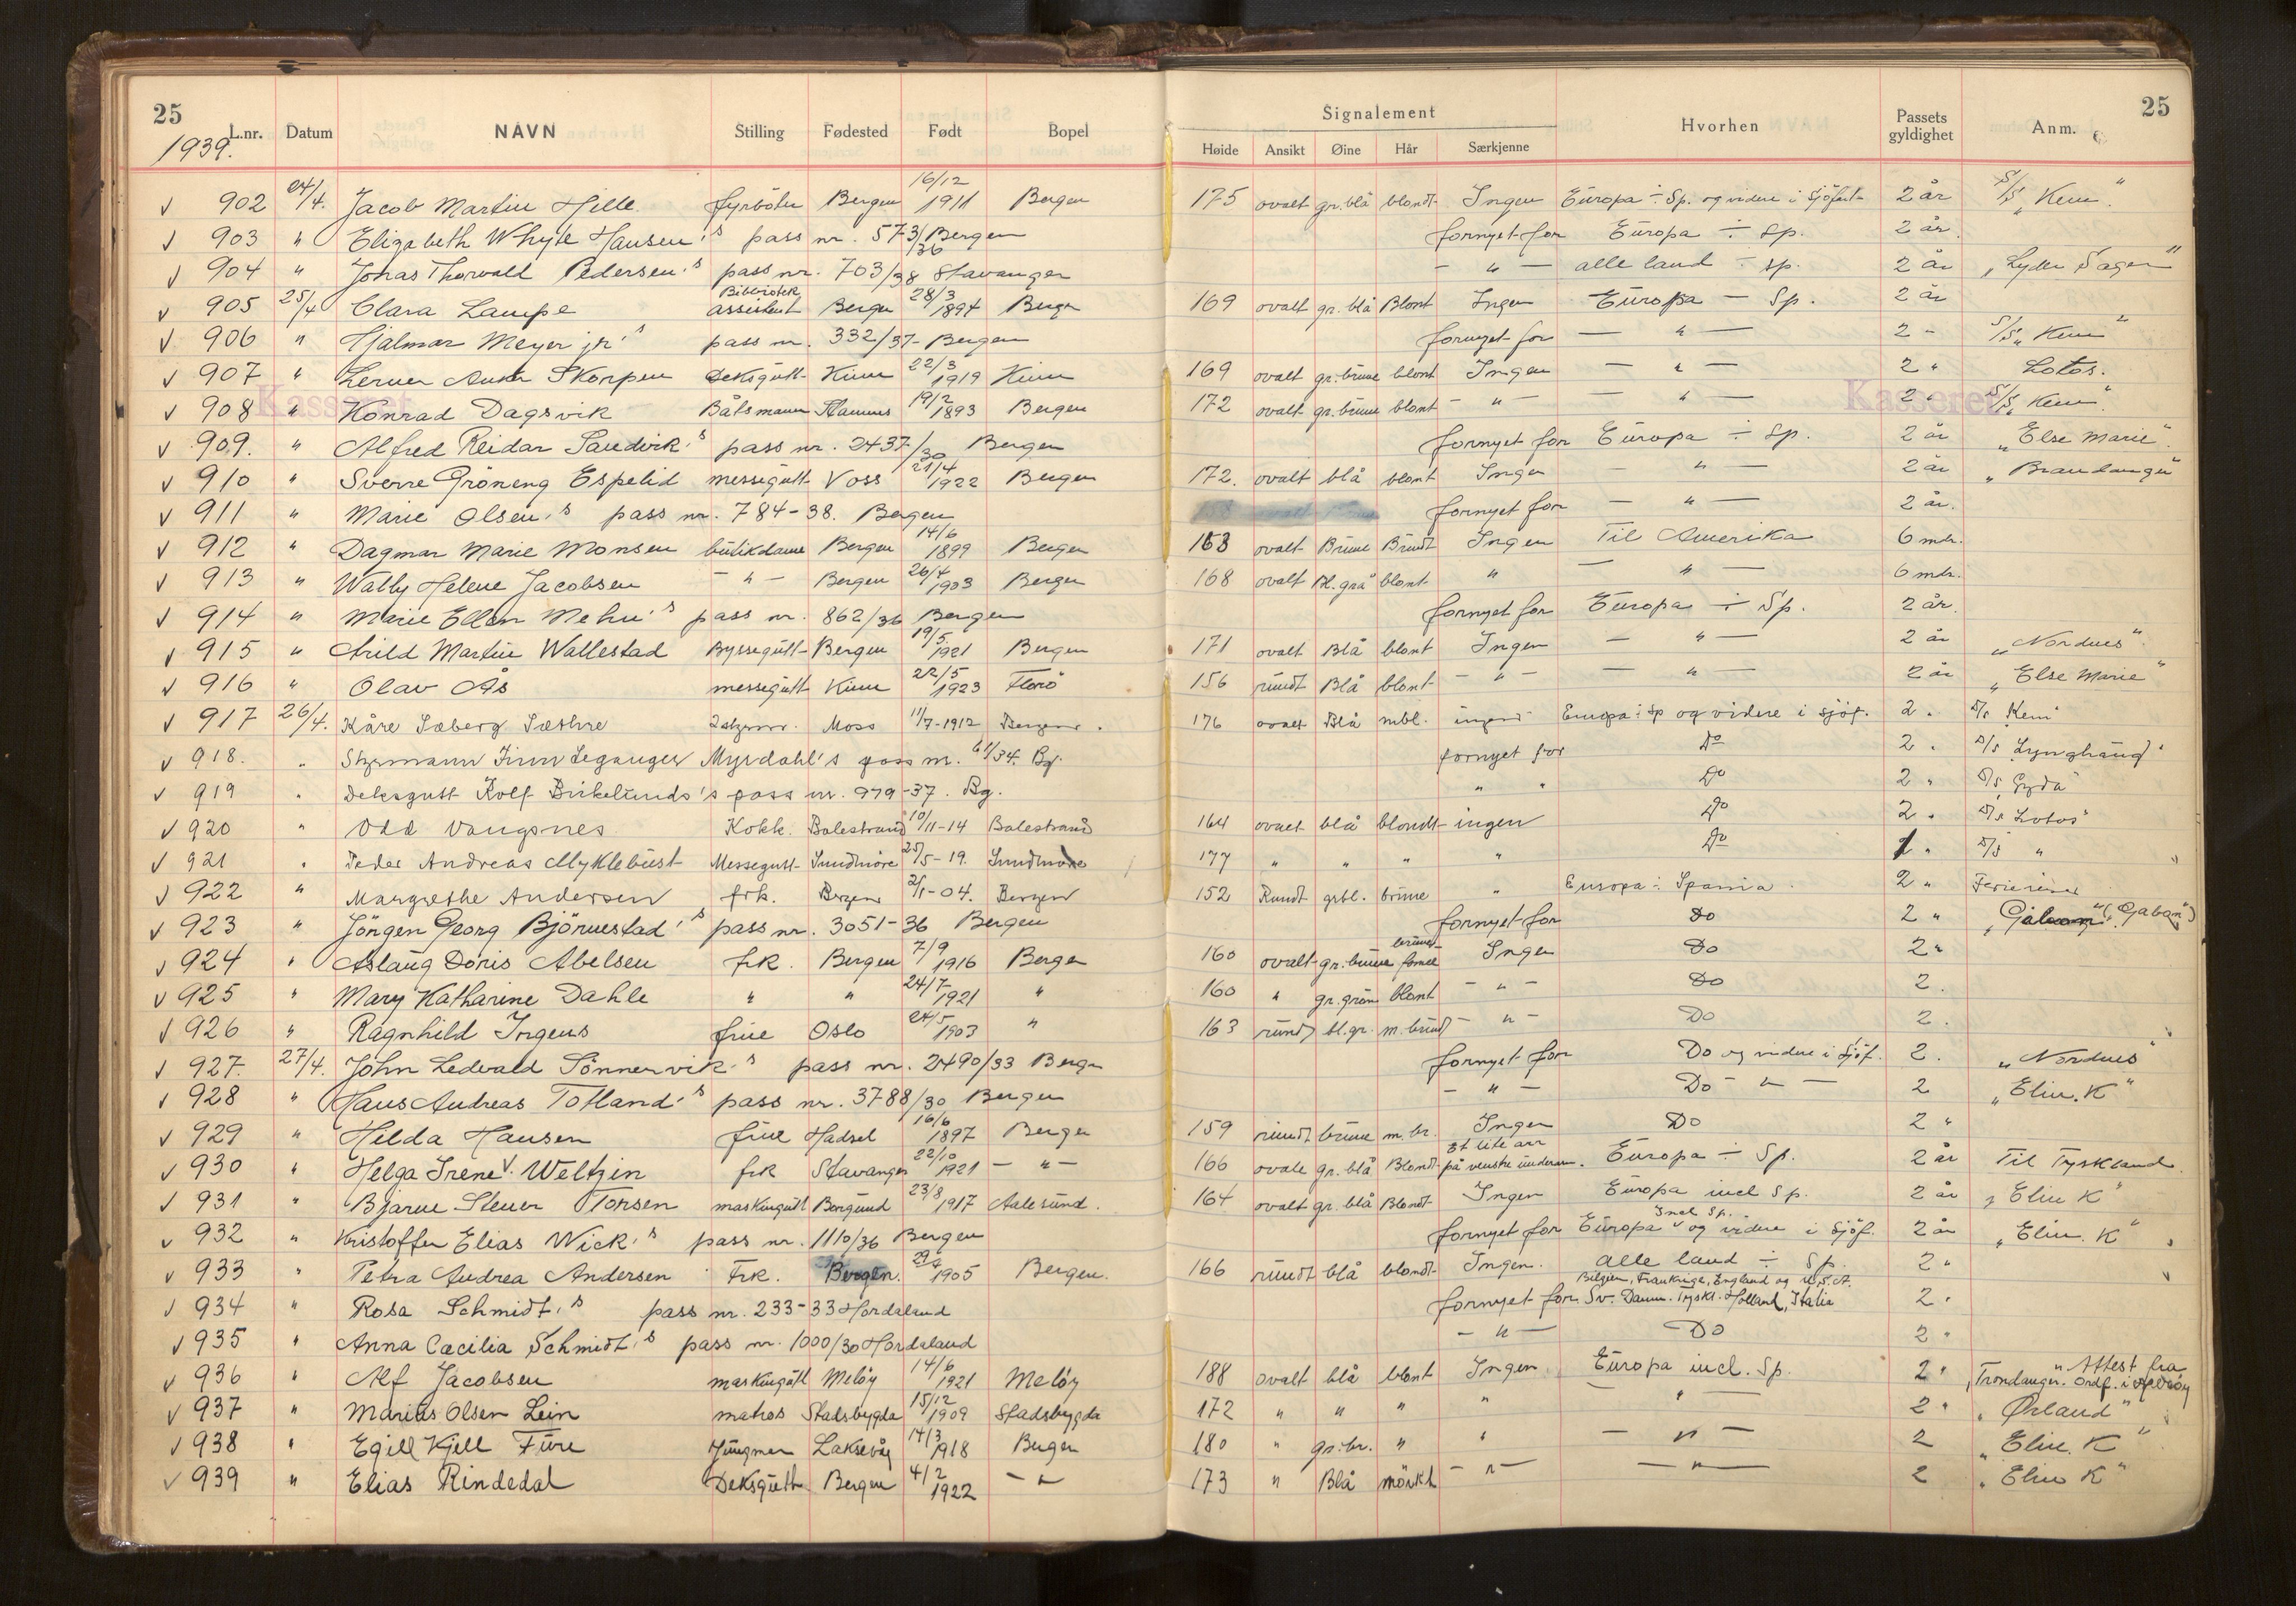 25
1939.
L.nr. Datum NAVN Stilling Fødested Født Bopel
Signalement
Høide Ansikt Øine Hår Særkjenne
Hvorhen Passets gyldighet Anm. 25
Kasseret Kasseret
902 24/4. Jacob Martin Hille fyrböter Bergen 16/12 1911 Bergen 175 ovalt gr.blå blondt Ingen Europa ÷ Sp. og videre i Sjöfart 2 år S/S „Kem“.
903 " Elizabeth Whyte Hansen's pass nr. 573/36 Bergen fornyet for Europa ÷ Sp. 2 år.
904 " Jonas Thorvald Pedersen's pass nr. 703/38 Stavanger - " - alle land ÷ sp. 2 år „Lyder Sagen“
905 25/4 Clara Lampe Bibliotek assistent Bergen 28/3 1894 Bergen 169 ovalt gr. blå Blont Ingen Europa ÷ Sp. 2 år
906 " Hjalmar Meyer jr's pass nr. 332/37 Bergen fornyet for — " — 2 - S/S „Kem“
907 " Skorpen Deksgutt Kinn 22/3 1919 Kinn 169 ovalt gr. brune blont Ingen — " — 2 " Lotos.
908 " Konrad Dagsvik Båtsmann Stamnes 19/2 1893 Bergen 172 ovalt gr. brune blont - " - — " — 2 " S/S „Kem“.
909. " Alfred Reidar Sandvik's pass nr. 2437/30 Bergen fornyet for Europa ÷ Sp. 2 år „Else Marie“.
910 " Sverre Gröneng Espelid messegutt Voss 21/4 1922 Bergen 172. ovalt blå blont Ingen — " — 2 år „Brandanger“
911 " Marie Olsen's pass nr. 784-38. Bergen fornyet for — " — 2 år.
912 " Dagmar Marie Monsen butikdame Bergen 14/6 1899 Bergen 168 ovalt Brune Brunt Ingen Til Amerika 6 mdr.
913 " Wally Helene Jacobsen - " - Bergen 26/4 1903 Bergen 168 ovalt Bl. grå blont " — " — 6 mdr.
914 " Marie Ellen Mehn's pass nr. 862/36 Bergen fornyet for Europa ÷ Sp. 2 år.
915 " Arild Martin Wallestad Byssegutt Bergen 19/5 1921 Bergen 171 ovalt Blå blont Ingen — " — 2 år „Nordnes“
916 " Olav Ås messegutt Kinn 22/5 1923 Florö 156 rundt Blå blont - " - — " — 2 år „Else Marie“
917 26/4. Kåre Sæberg Sæthre 2styrm. Moss 11/7-1912 Bergen. 176 ovalt Blå mbl. ingen Europa ÷ Sp og videre i sjöf. 2 . D/s Kem
918. " Styrmann Finn Leganger Myrdahl's pass nr. 61/34. Bg. fornyet for Do 2 . D/s „Lynghaug“
919 " Deksgutt Rolf Birkelunds's pass nr. 979-37. Bg. " " Do 2 " D/s „Gyda“
920 " Odd Vangsnes Kokk. Balestrand 10/11-14 Balestrand 164 ovalt blå blondt ingen Do 2 . D/s „Lotos“
921 " Peder Andreas Myklebust Messegutt Sundmöre 25/5-19. Sundmöre 177 " " " " Do 1 " D/s "
922 " Margrethe Andersen frk. Bergen 2/1-04. Bergen 152 Rundt grbl. brune " Europa ÷ Spania. 2 " Feriereise
923 " Jörgen Georg Björnestad's pass nr. 3051-36 Bergen fornyet for Do 2 " („Gabon“)
924 " Aslaug Doris Abelsen frk. Bergen 7/9 1916 Bergen 160 ovalt gr. brune brunet Ingen Do 2 "
925 " Mary Katharine Dahle " " 24/7 1921 " 160 " gr. grön blont - " - Do 2.
926 " Ragnhild Irgens frue Oslo 24/5 1903 " 163 rundt bl.gr. m.brundt - " - Do 2.
927. 27/4. John Ledvald Sönnervik's pass nr. 2490/33 Bergen fornyet for Do og videre i Sjöf. 2. „Nordnes“
928 " Hans Andreas Totland's pass nr. 3788/30 Bergen - " - Do - " — 2 „Elin. K“
929 " Hilda Hansen frue Hadsel 16/6 1897 Bergen 159 rundt brune m. br. Ingen Do 2 "
930 " Helga Irene V. Weltzin frk Stavanger 22/10 1921 - " - 166 ovale gr. blå Blondt Et lite arr på venstre underarm. Europa ÷ Sp. 2 år Til Tyskland.
931 " Bjarne Stener Torsen maskingutt Borgund 23/8 1917 Aalesund. 164 ovalt gr. blå Blondt Ingen Europa incl Sp. 2 år „Elin K“
932 " Kristoffer Elias Wick's pass nr. 1110/36 Bergen fornyet for Europa Incl Sp. og videre i Sjöf. 2 år „Elin. K“
933 " Petra Andrea Andersen Frk. Bergen. 1905 Bergen. 166 rundt blå blondt Ingen. alle land ÷ Sp. 2 "
934 " Rosa Schmidt's pass nr. 233-33 Hordaland fornyet for Sv. Danm. Tyskl. Holland, Italia Belgien, Frankrige, England og U.S.A. 2 "
935 " Anna Cæcilia Schmidt's pass nr. 1000/30 Hordaland - " - Do 2 "
936 " Alf Jacobsen maskingutt Melöy 14/6 1921 Melöy 188 ovalt blå blont Ingen Europa incl. Sp. 2 " „Trondanger“ Attest fra Ordf. i Melöy
937 " Marius Olsen Lein matros Stadsbygda 15/12 1909 Stadsbygda 172 " " " " — " 2 " „Ørland“
938 " Egill Kjell Fure Jungmann Laksevåg 14/3 1918 Bergen 180 " gr. br. " " — " — 2 „Elin. K“
939 " Elias Rindedal Deksgutt Bergen 4/2 1922 - " 173 " Blå mörkt - " - — " — 2 „Elin K“